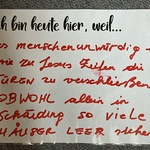 ch bin heute hier, weil...
es menschenunwürdig
zu Jesus
TÜREN zu verschließen
OBWOHL allein in
so viele
HÄUSER LEER stehen